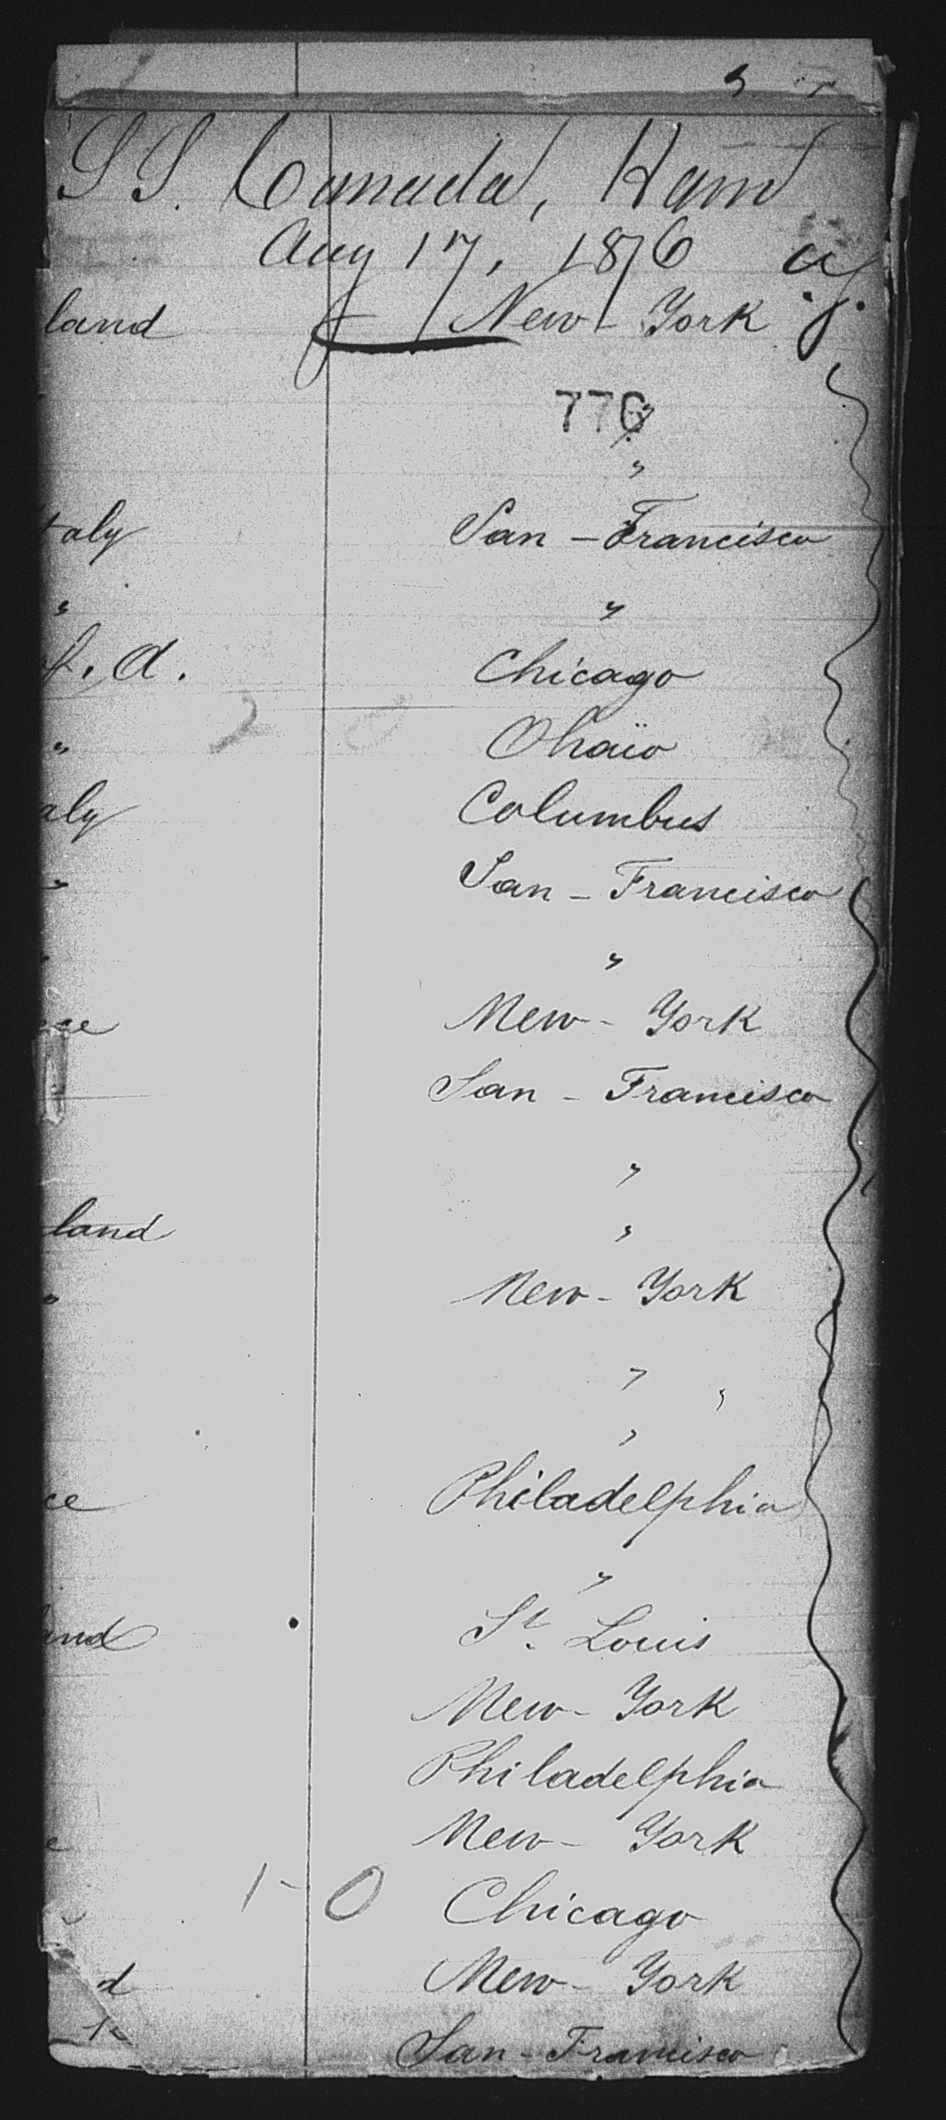 SS. Canada, Ham
Aug 17, 1876
land New-York
776
"
taly San-Francisco
" "
A. Chicago
" Ohaïo
aly Columbus
" San-Francisco
"
ce New-York
San-Francisco
"
land "
" New-York
"
"
ce Philadelphia
"
and St. Louis
New-York
Philadelphia
e New-York
1-0 Chicago
d New-York
San-Francisco